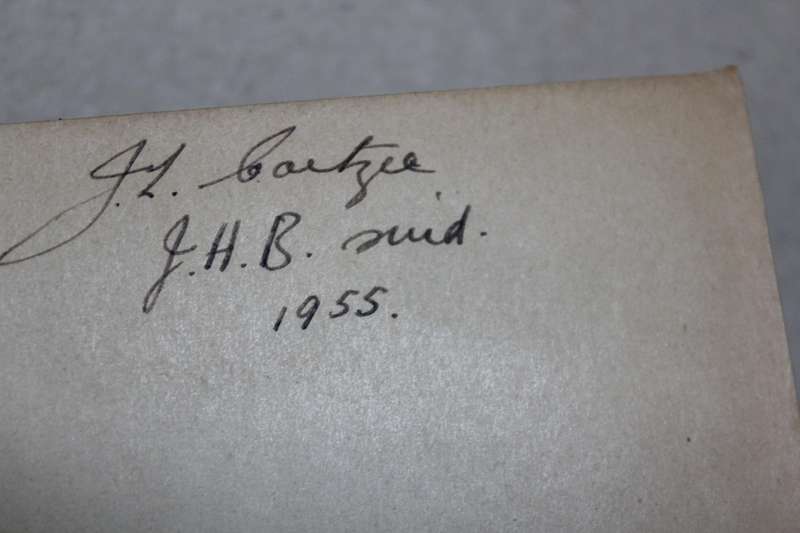 J.L. Coetzee
J.H.B. suid.
1955.